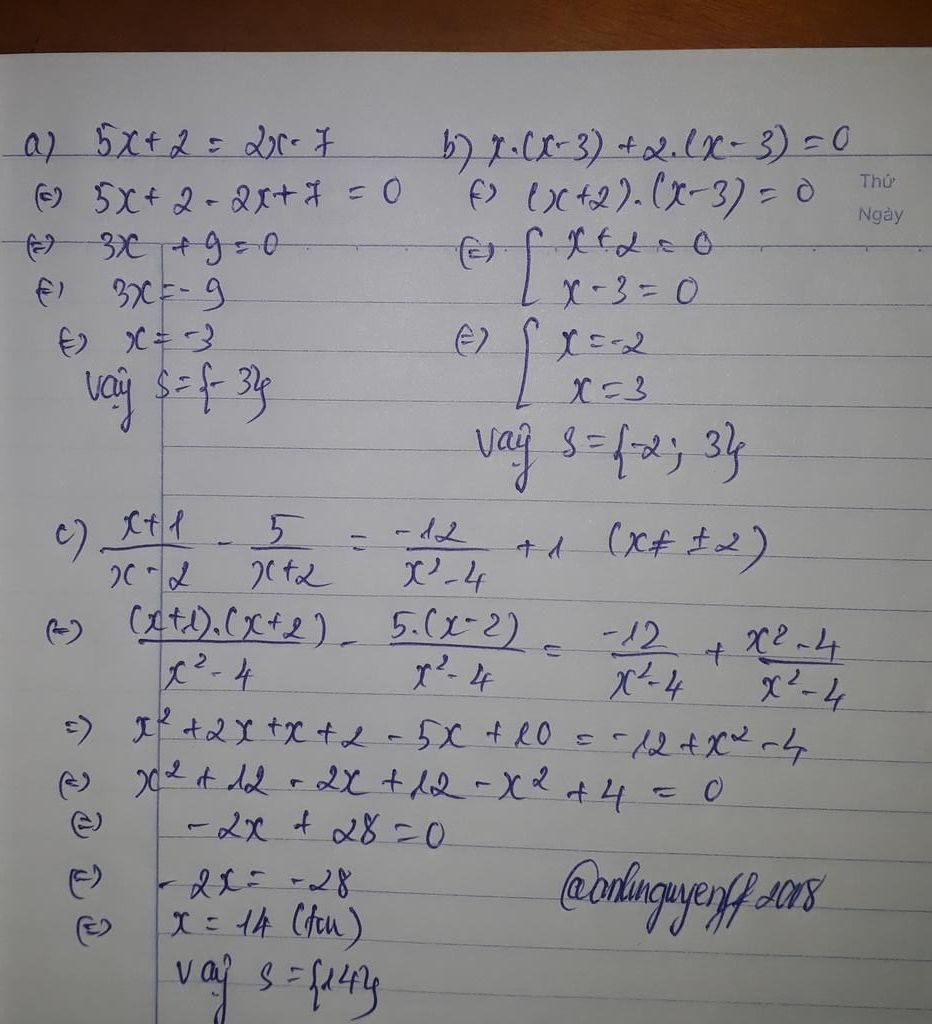 a) 5x + 2 = 2x - 7
(=) 5x + 2 - 2x + 7 = 0
(=) 3x + 9 = 0
(=) 3x = - 9
(=) x = -3
Vậy S = {- 3}
b) x.(x - 3) + 2.(x - 3) = 0
(=) (x+2).(x-3) = 0
(=) [ x + 2 = 0
x - 3 = 0
(=) [ x = -2
x = 3
Vậy S = {-2; 3}
Thứ
Ngày
c) x+1/x-2 - 5/x+2 = -12/x²-4 + 1 (x ≠ ±2)
(=) (x+1).(x+2)/x²-4 - 5.(x-2)/x²-4 = -12/x²-4 + x²-4/x²-4
=) x² + 2x + x + 2 - 5x + 10 = -12 + x² - 4
(=) x² + 12 - 2x + 12 - x² + 4 = 0
(=) -2x + 28 = 0
(=) - 2x = -28
(=) x = 14 (tm)
Vậy S = {14}